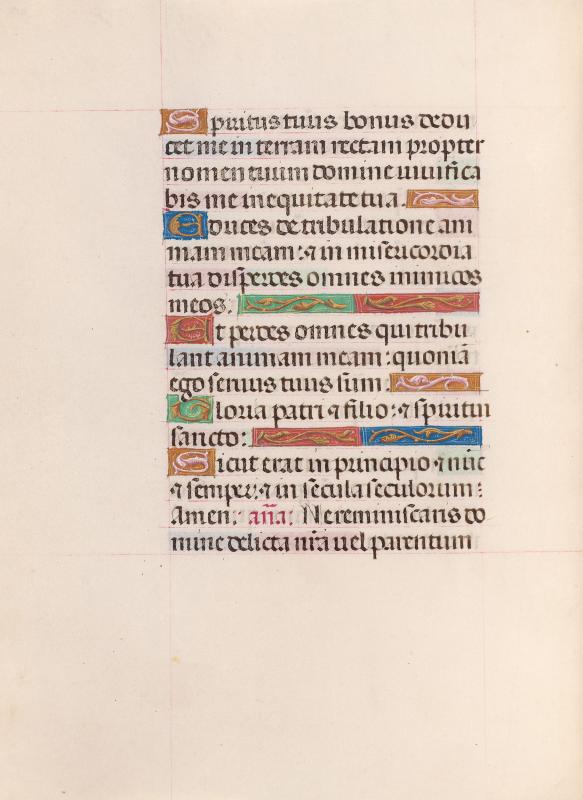 Spiritus tuus bonus dedu
cet me in terram rectam propter
nomen tuum domine uiuifica
bis me in equitate tua.
Educes de tribulatione ani
mam meam: ⁊ in misericordia
tua disperdes omnes inimicos
meos:
Et perdes omnes qui tribu
lant animam meam: quoniā
ego seruus tuus sum:
Gloria patri ⁊ filio: ⁊ spiritui
sancto:
Sicut erat in principio ⁊ nūc
⁊ semper: ⁊ in secula seculorum:
Amen: aña: Ne reminiscaris do
mine delicta nr̄a uel parentum